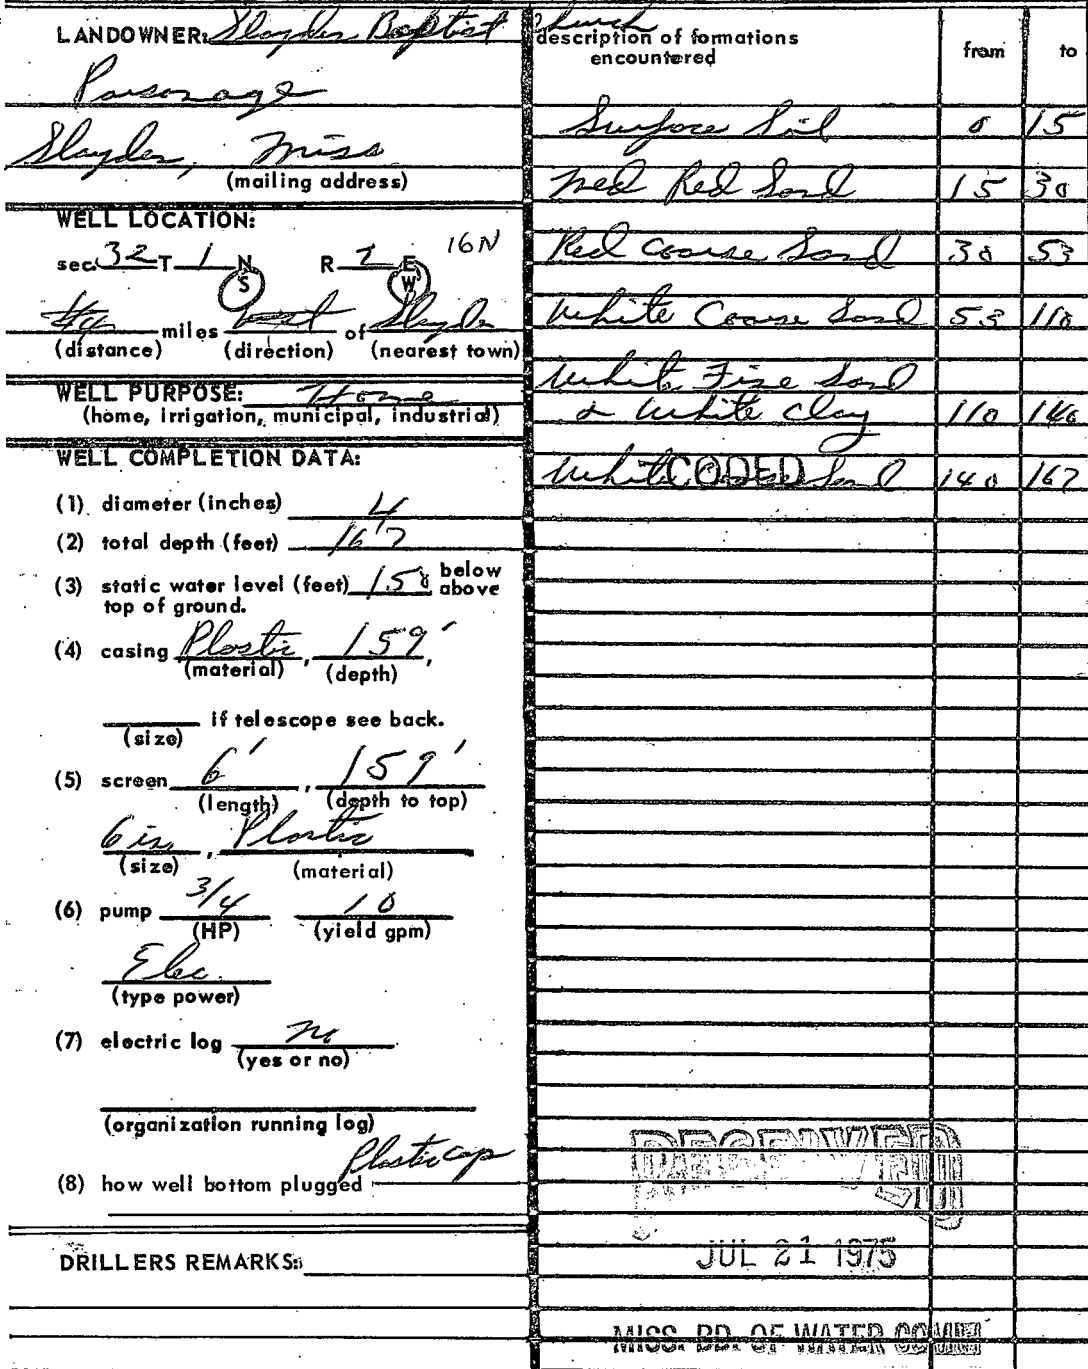 LANDOWNER: Slayden Baptist Church
Parsonage
Slayden, Miss
(mailing address)
WELL LOCATION:
16N
sec. 32 T 1 N R 2 E
S W
miles of Slayden
(distance) (direction) (nearest town)
WELL PURPOSE: Home
(home, irrigation, municipal, industrial)
WELL COMPLETION DATA:
(1) diameter (inches) 4
(2) total depth (feet) 167
(3) static water level (feet) 150 below
above
top of ground.
(4) casing Plastic, 159',
(material) (depth)
if telescope see back.
(size)
(5) screen 6', 159'
(length) (depth to top)
6 in, Plastic
(size) (material)
(6) pump 3/4 10
(HP) (yield gpm)
Elec.
(type power)
(7) electric log no
(yes or no)
(organization running log)
Plastic cap
(8) how well bottom plugged
DRILLERS REMARKS:
description of formations
encountered from to
Surface Soil 0 15
Med Red Sand 15 30
Red Coarse Sand 30 53
White Coarse Sand 53 110
White Fine Sand
& White Clay 110 140
White Sand 140 167
CODED
RECEIVED
JUL 21 1975
MISS. BD. OF WATER COMM